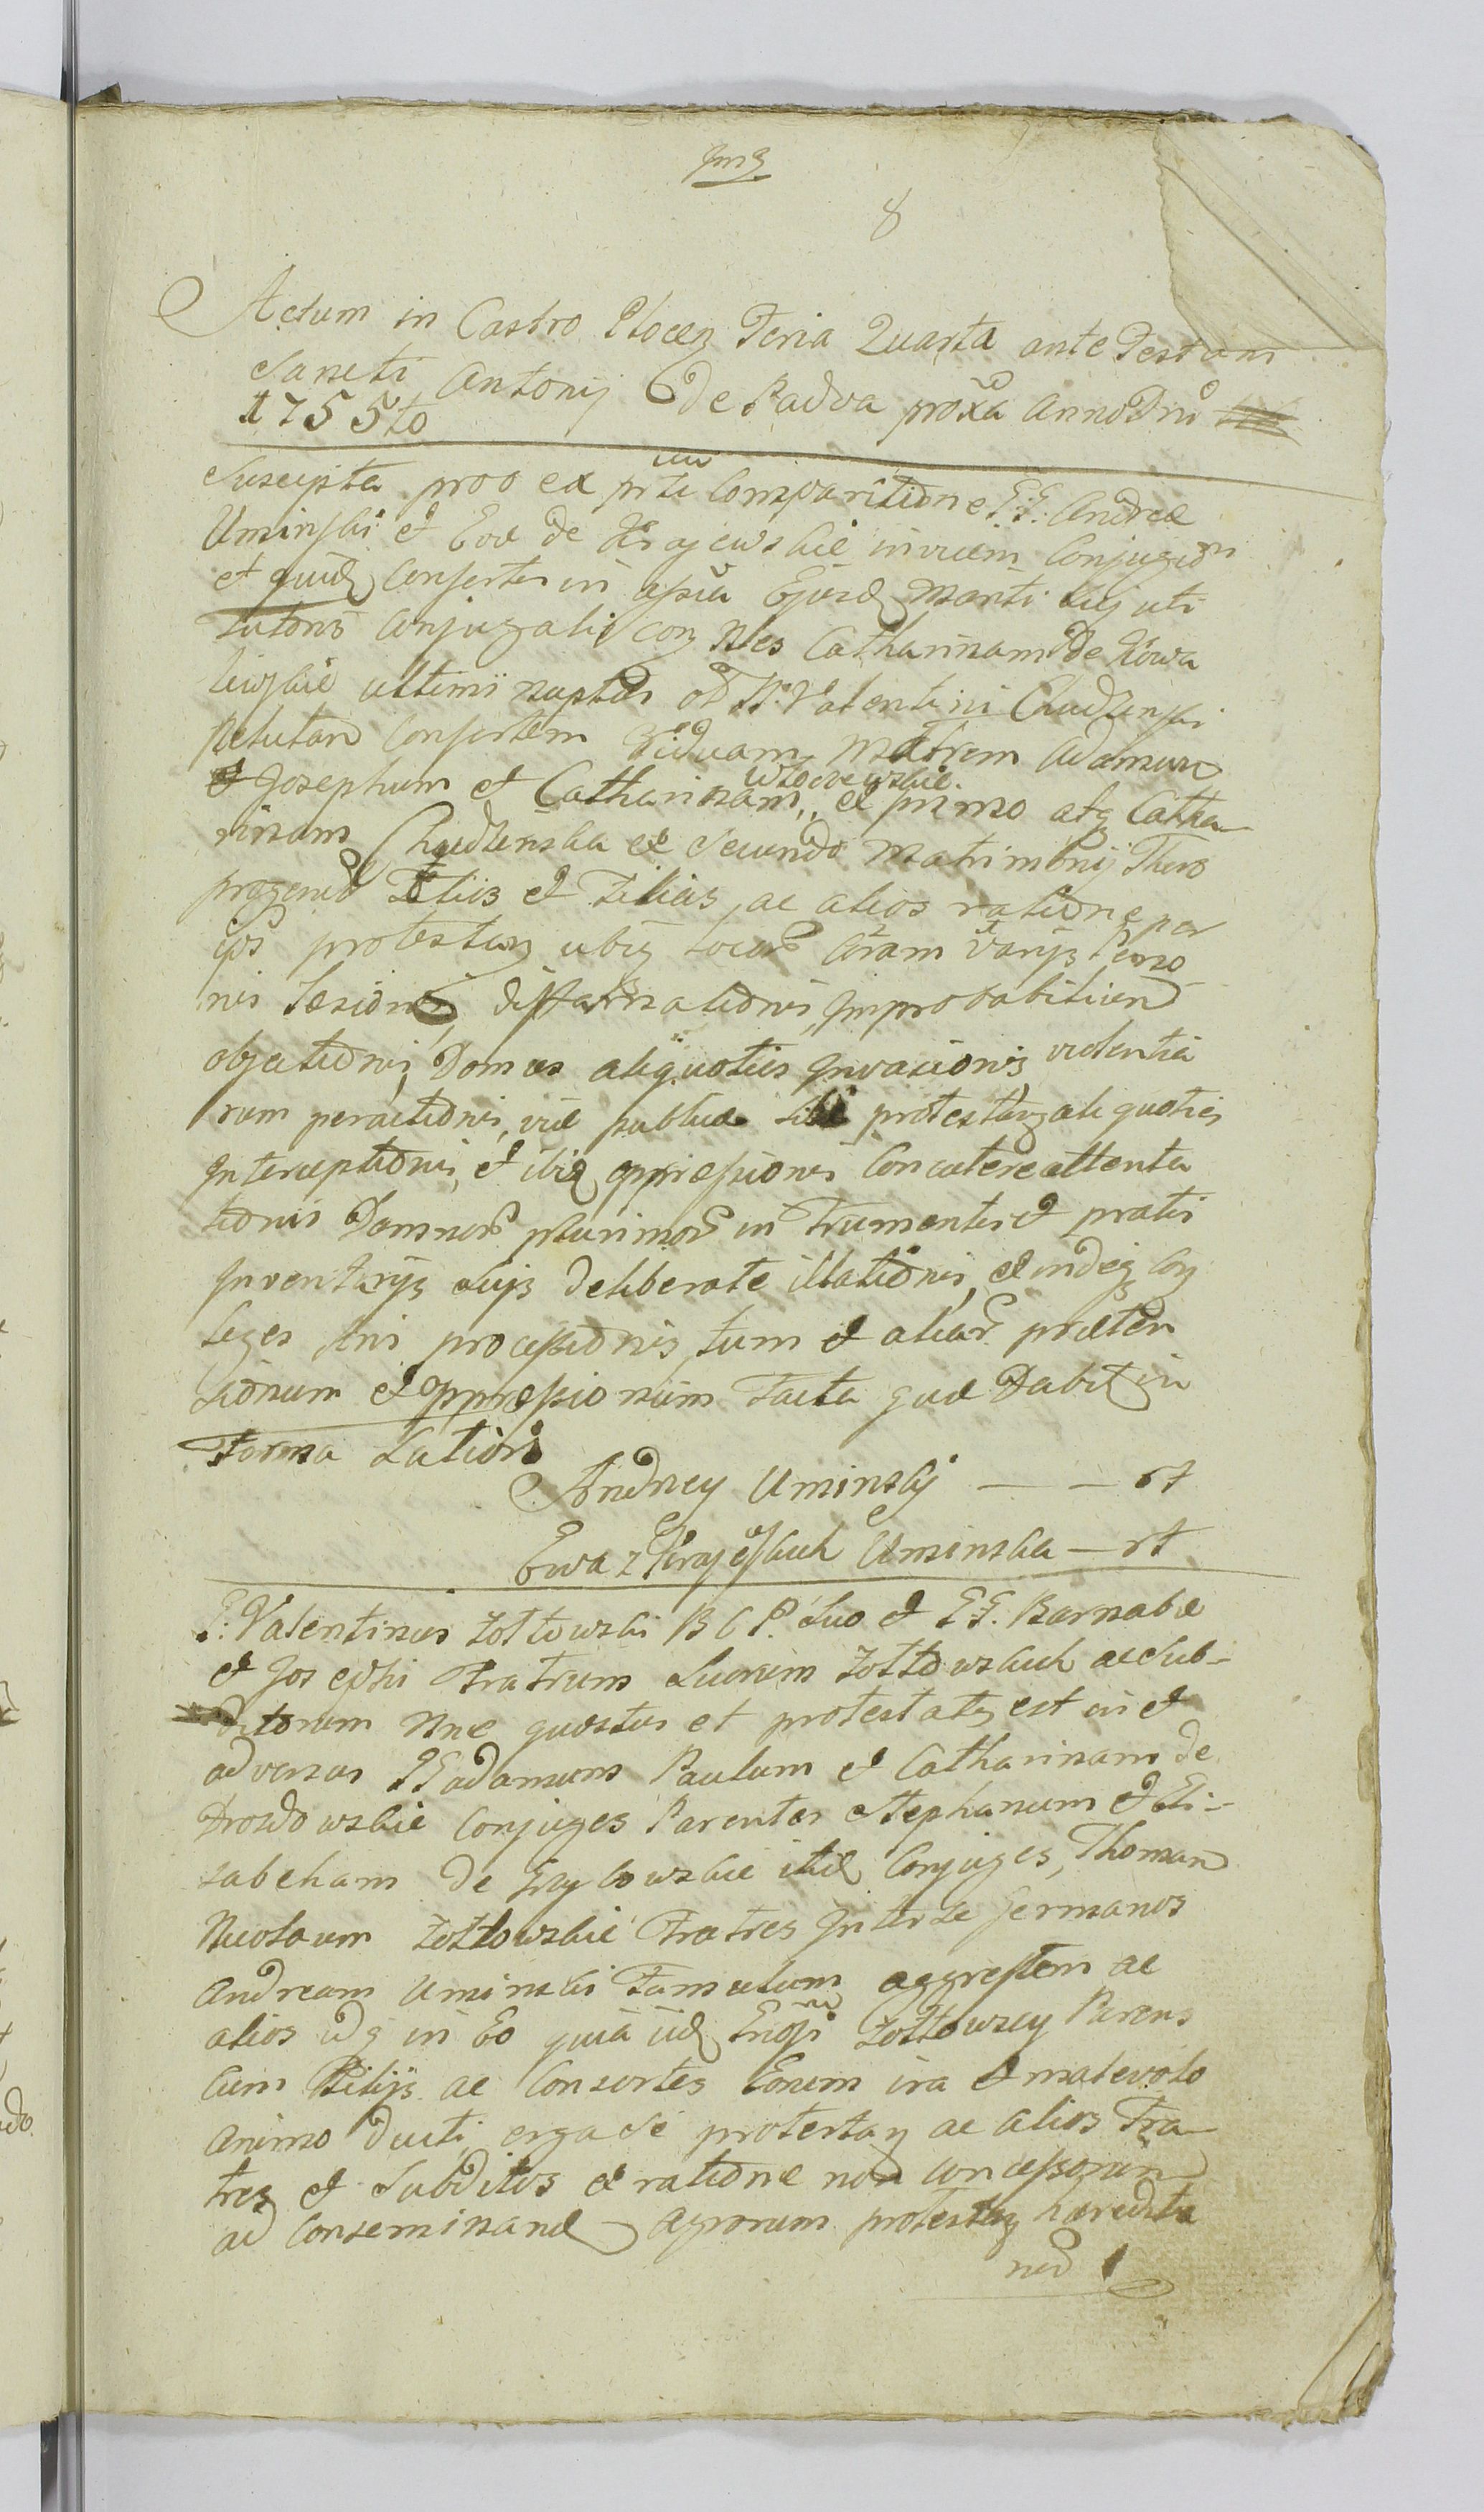 8
Actum in Castro Plocen Feria Quarta ante Festum
Sancti Antonij De Padva proxa Anno Dni
1755to
Suscipta proo ex prti Comparitione GG. Andreæ
Uminski et Evæ de Krajewskie invicem Conjugum
et quid Consortis in aßia Ejusd Mariti sui uti
tutoris conjugalis con Nles Catharinam de Kowa
lewskie ultimi nuptus ol N. Valentini Chudzinski
relictam Consortem Viduam Matrem Adamum
et Josephum et Catharinam Wtoczewskie ex primo atq Catha
rinam Chudzinska ex Secundo Matrimonij Thoro
progenitos Filiis et Filias, ac alios ratione per
ips protestan ubiq locor Coram varijs Perso
nis Læsionis, diffamationis, Improbabilium
objectionis, Domus aliquoties Invasionis, violentia
rum peractionis, viæ publicæ sibi protestan aliquoties
Interceptionis, et ibid oppressionis Concutere attenta
tionis Damnor plurimor in Frumentis et pratis
Inventarijs sujs deliberate illationis, et indeq con
leges tris processionis, tum et aliar præten
sionum et oppressionum facta quæ Dabit in
Forma Latiori
Andrzey Uminsky — — st
Ewa z Krajeskich Uminska — st
G: Valentinus Zoltowski B C P. Suo et GG. Barnabæ
et Josephi Fratrum Suorum Zoltowskich ac Sub-
ditorum Nne questus et protestatus est in et
adversus GG Adamum Paulum et Catharinam de
Drozdowskie Conjuges Parentes Stephanum et Eli-
sabetham de Grzybowskie itid Conjuges, Thomam
Nicolaum Zoltowskie Fratres Inter se germanos
Andream Uminski Famulum aggrestem ac
alios idq in Eo quia iid Gnosi Zoltowscy Parens
Cum Filijs ac Consortes Eorum ira et malevolo
animo ducti erga se protestan ac alios Fra-
tres et Subditos ex ratione non concessorum
ad conseminand agrorum protestan hæredita